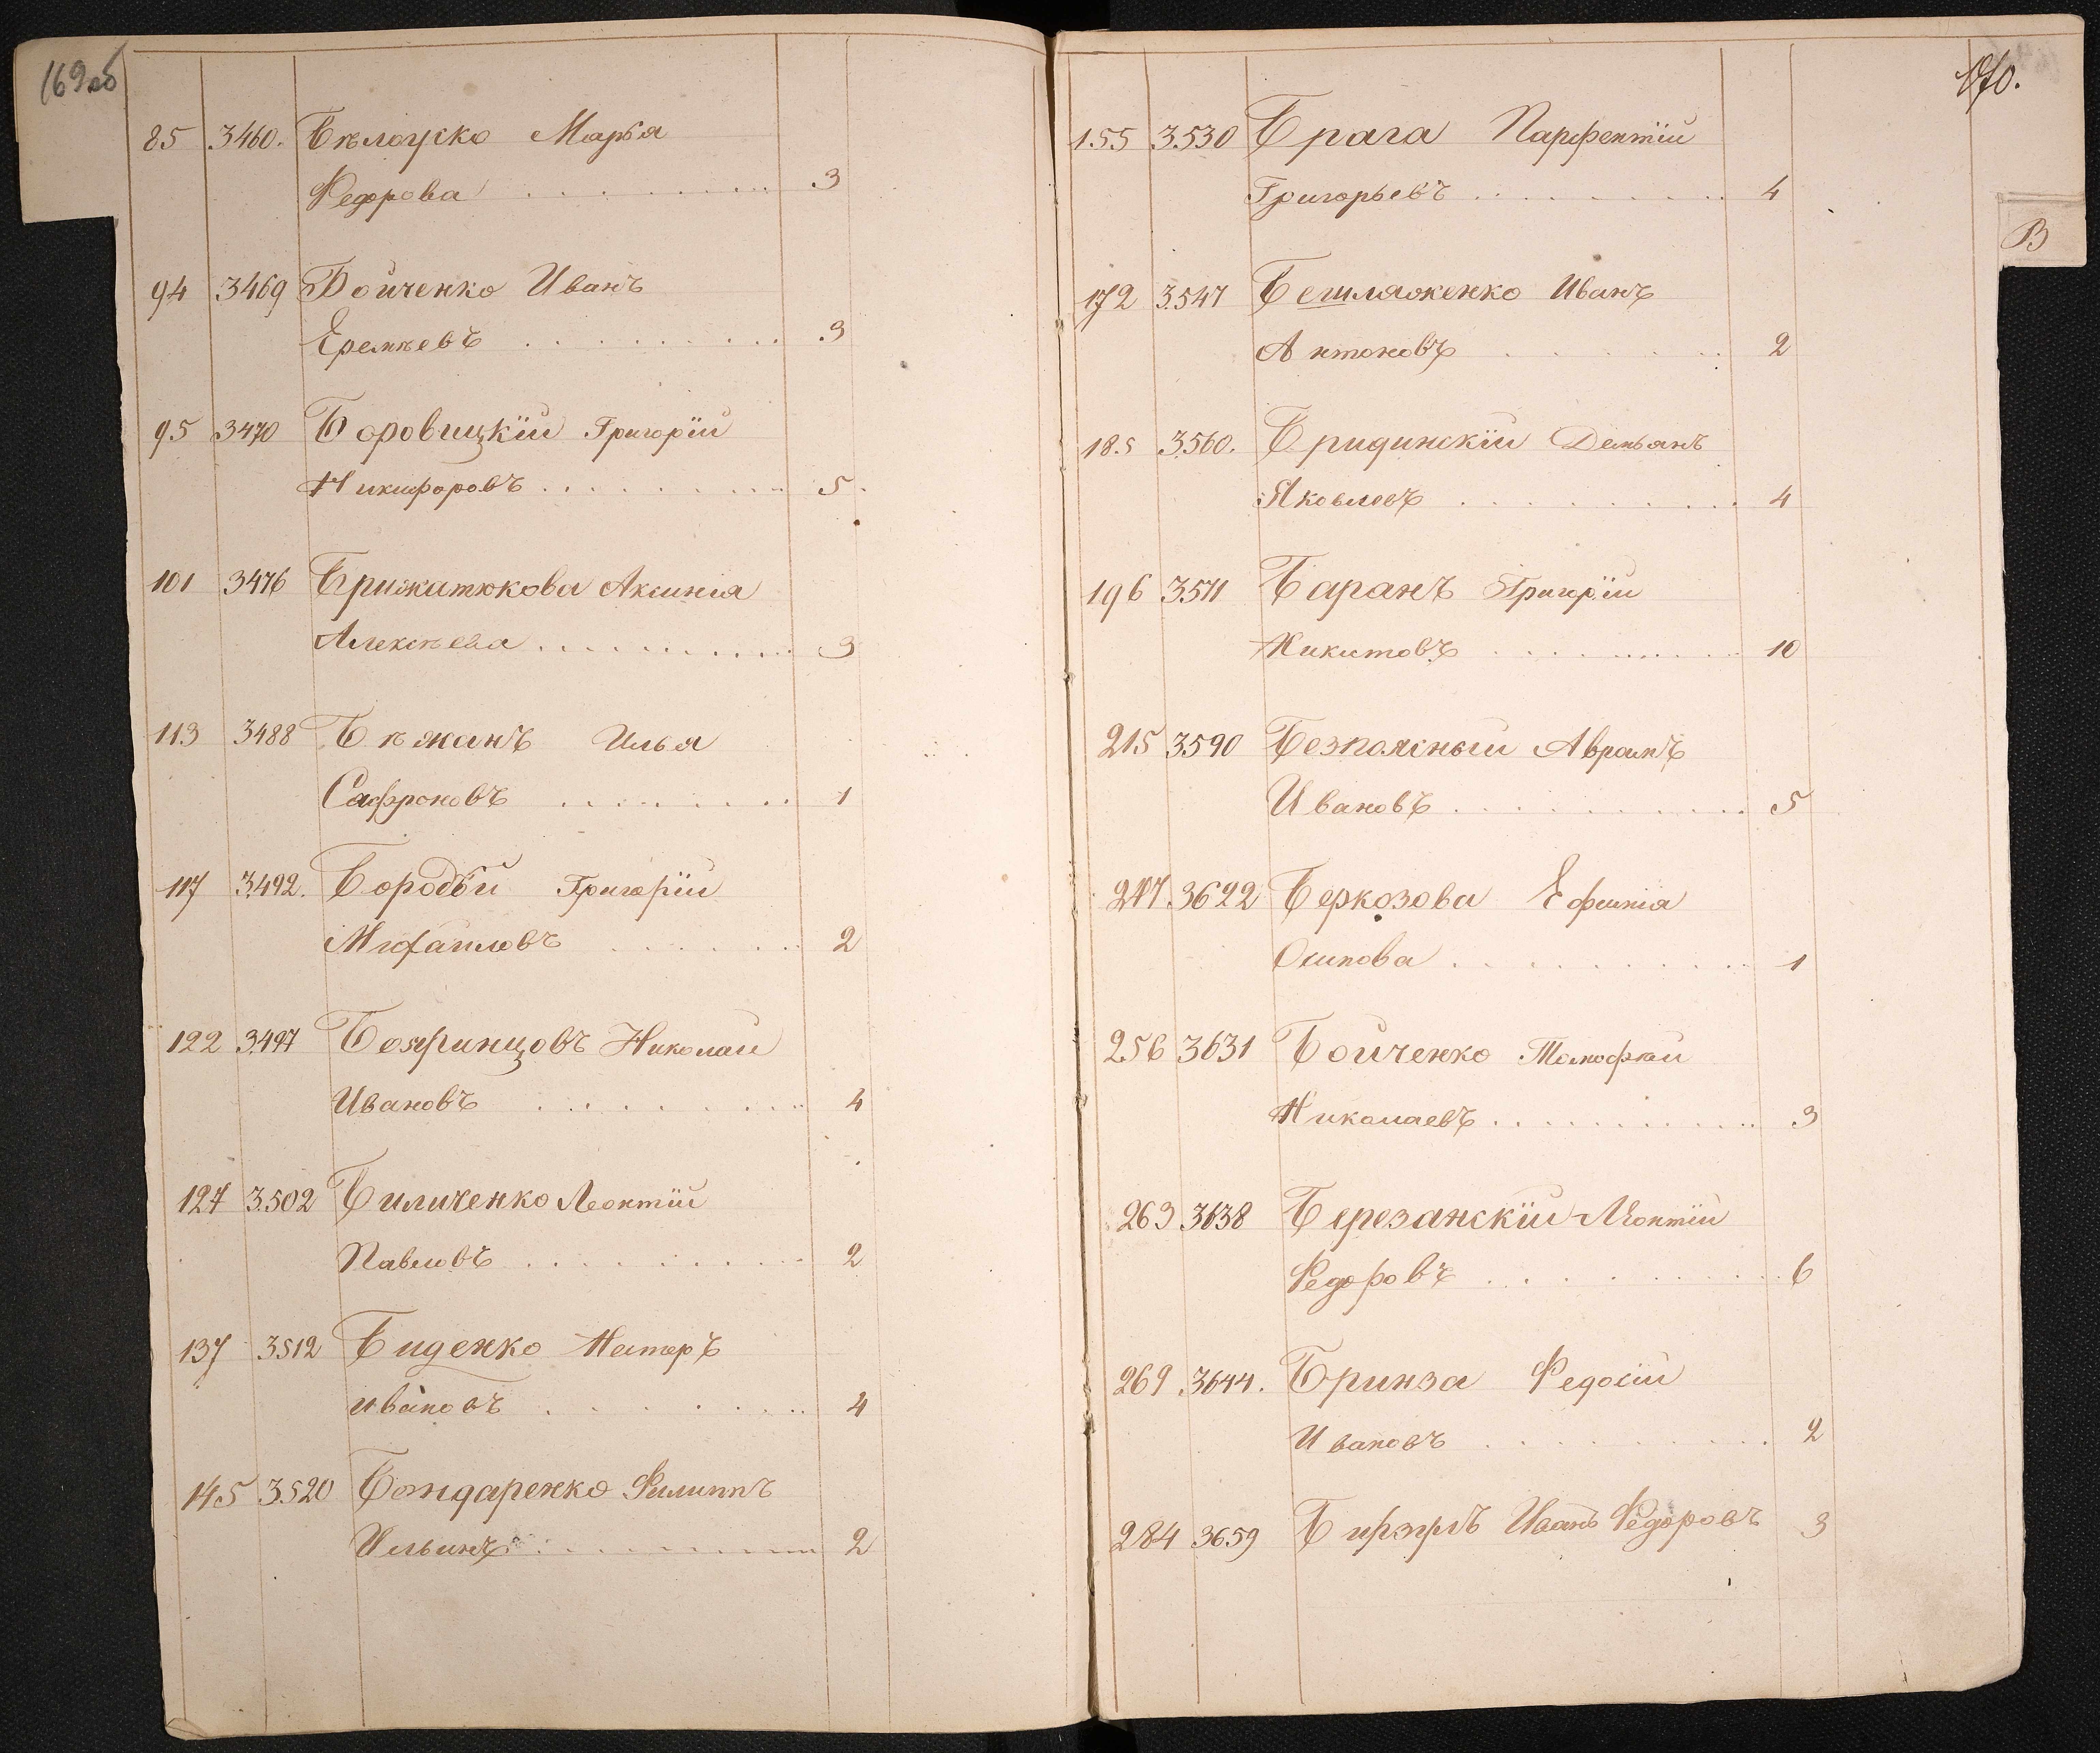 169 об
85 3460. Бѣлоуско Марья
Федорова 3
94 3469 Бойченко Иванъ
Еремѣевъ 3
95 3470 Боровицкій Григорій
Никифоровъ 5
101 3476 Брижатюкова Аксинія
Алексѣева 3
113 3488 Бѣжанъ Илья
Сафроновъ 1
117 3492. Бородій Григорій
Михайловъ 2
122 3497 Николай
Ивановъ 4
127 3502 Биличенко Леонтій
Павловъ 2
137 3512 Биденко Нестеръ
Ивановъ 4
145 3520 Бондаренко Филиппъ
Ильинъ 2
170.
В
155 3530 Брага Парфентій
Григорьевъ 4
172 3547 Бешляженко Иванъ
Антоновъ 2
185 3560. Бридинскій Демьянъ
Яковлевъ 4
196 3571 Баранъ Григорій
Никитовъ 10
215 3590 Безпоясный Аврамъ
Ивановъ 5
247 3622 Беркозова Ефимія
Осипова 1
256 3631 Бойченко Тимофей
Николаевъ 3
263 3638 Березанскій Леонтій
Федоровъ 6
269 3644. Бринза Федосій
Ивановъ 2
284 3659 Иванъ Федоровъ 3